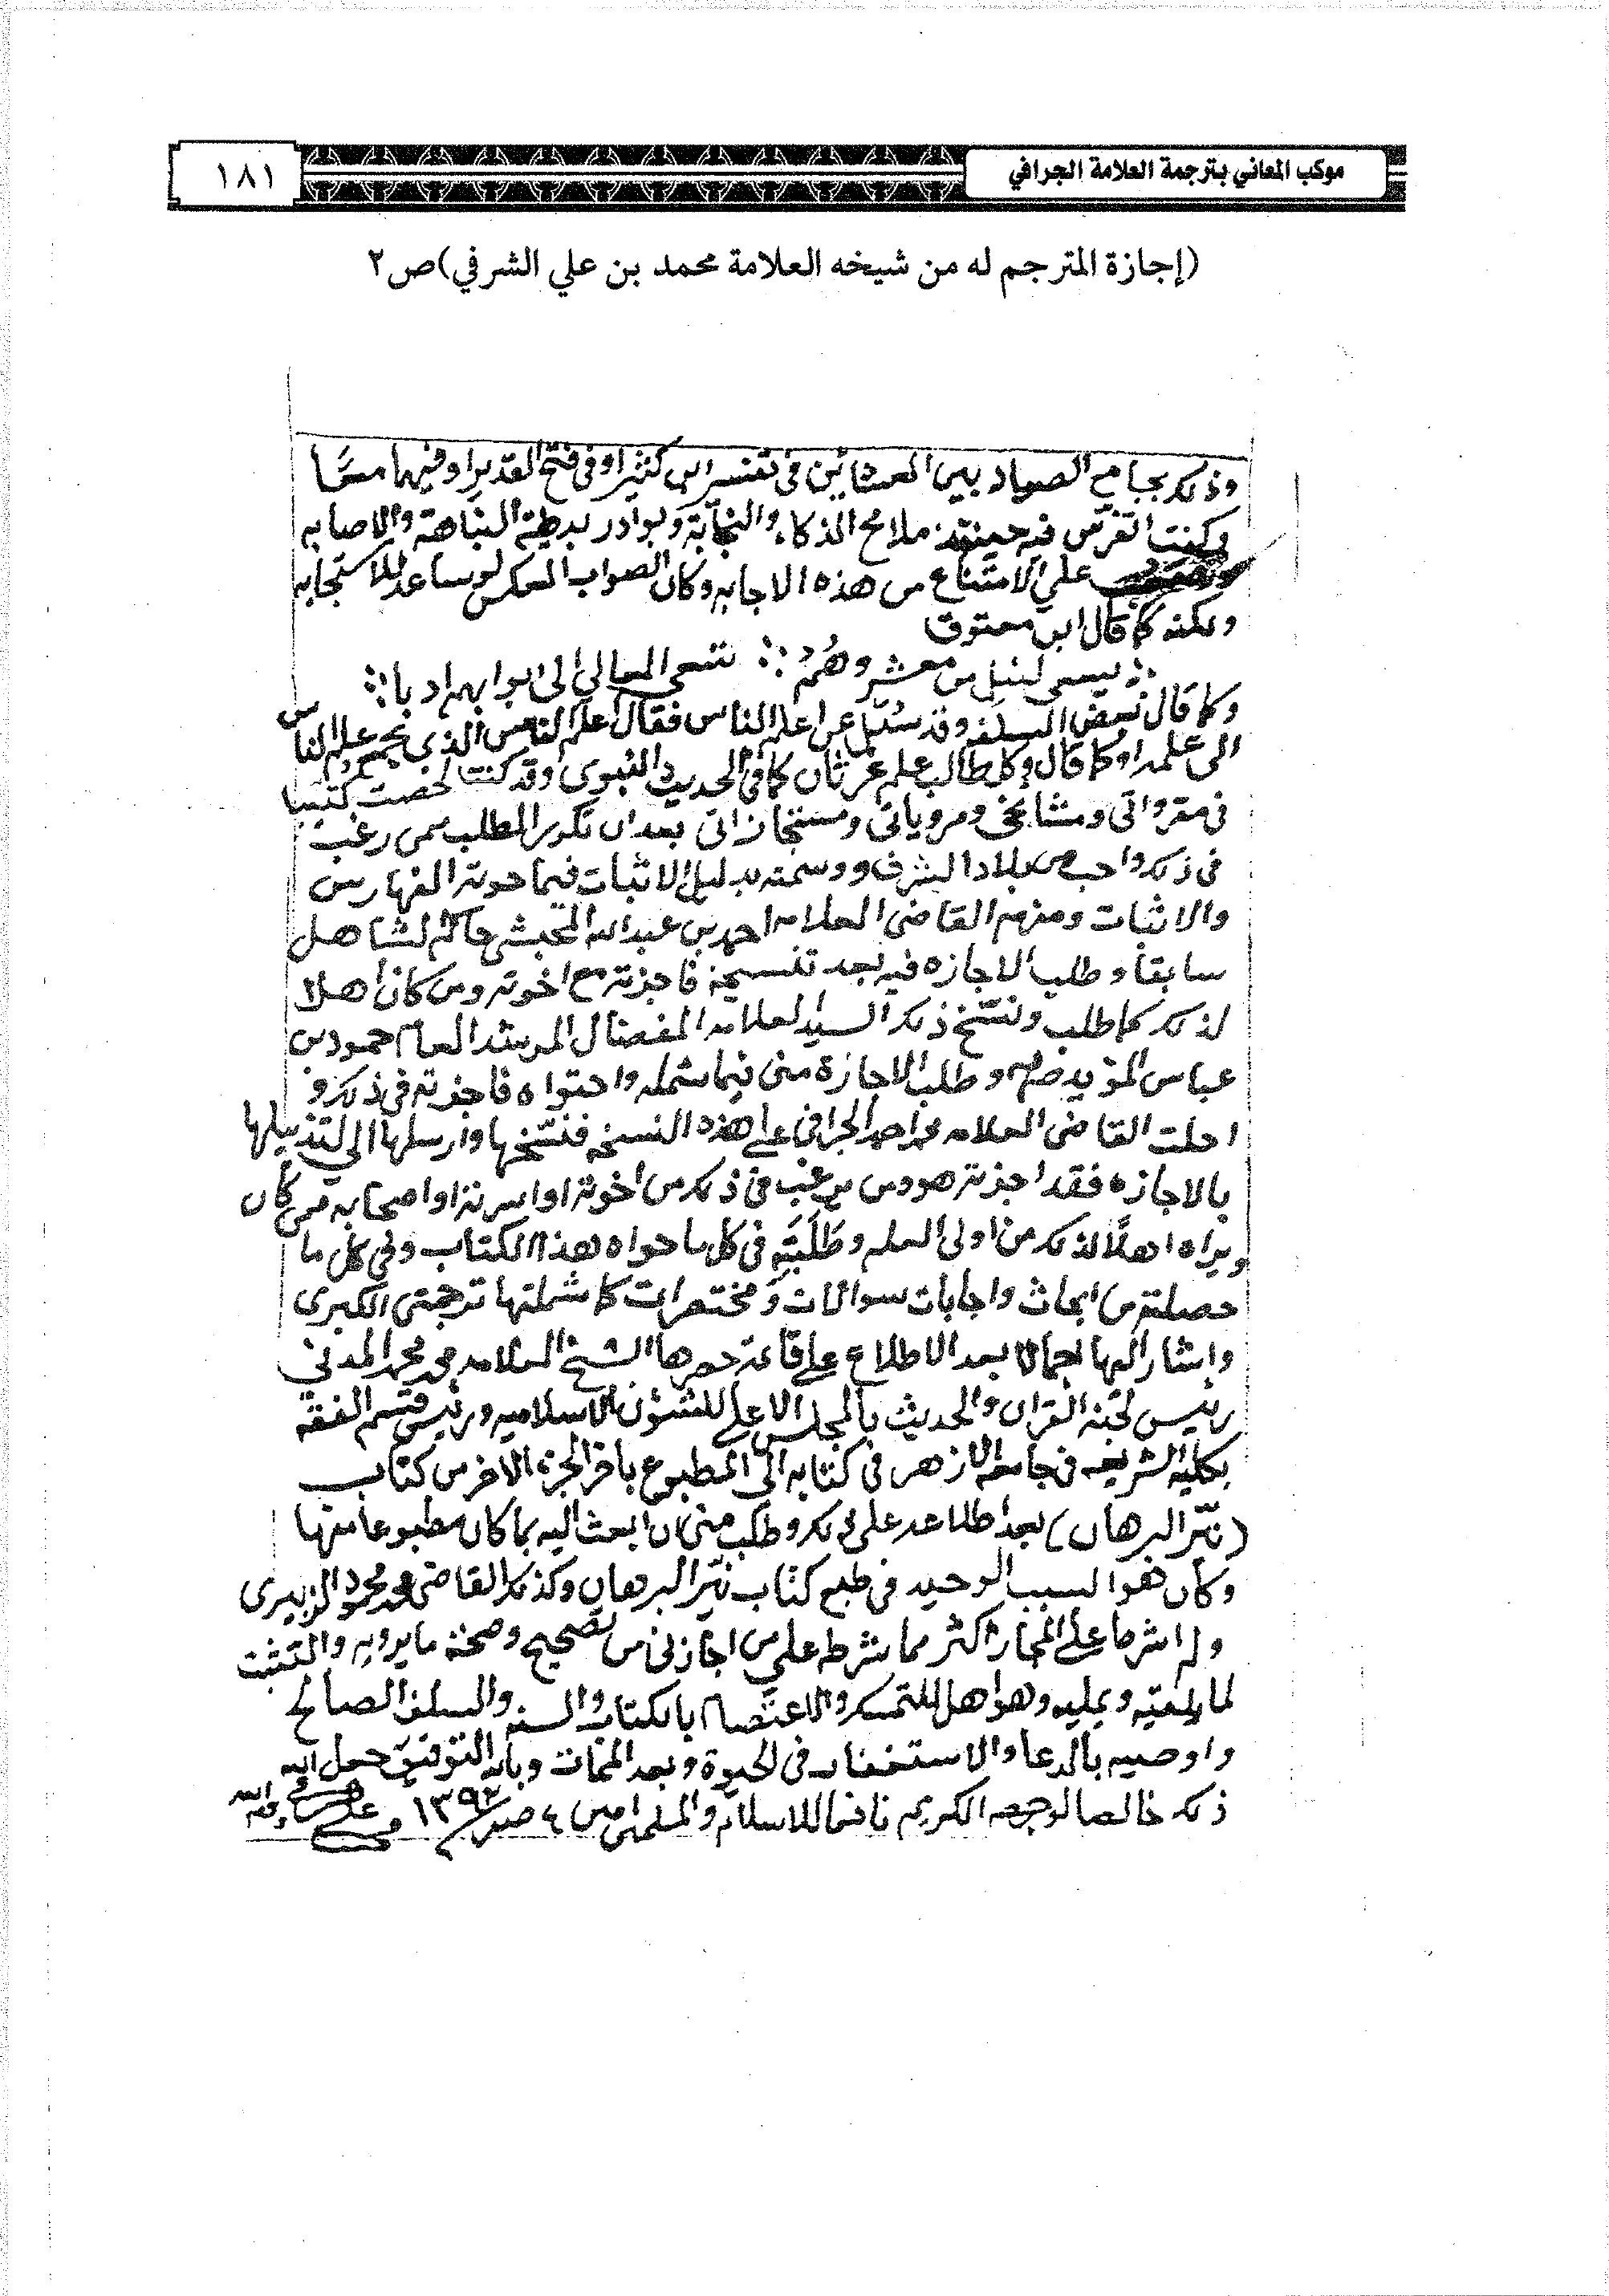 موكب المعاني بترجمة العلامة الجرافي
١٨١
(إجازة المترجم له من شيخه العلامة محمد بن علي الشرفي) ص٢
وذلك بجامع الصياد بين العشائين في تفسير ابن كثير او في فتح القدير او فيهما معًا
وكنت اتفرّس فيه حينئذ ملامح الذكاء والنجابة وبوادر بديطية النباهة والاصابه
على الامتناع من هذه الاجابه وكان الصواب العكس لو ساعد للاستجابه
ولكنه كما قال ابن معتوق
يسعى لنيل من معشر وهُمُ :: تسعى المعالي الى ابوابهم ادبا ::
وكما قال بعض السلف وقد سُئل عن اعلم الناس فقال اعلم الناس الذي يجمع علم الناس
الى علمه او كما قال وكل طالب علم غرثان كما في الحديث النبوي وقد كنت لخصت كتيبا
في مقرواتي ومشايخي ومروياتي ومستجازاتي بعد ان تكرر الطلب ممن رغب
في ذلك واحب من بلاد الشرف ووسمته بدليل الاثبات فيما حوته الفهارس
والاثبات ومنهم القاضي العلامه احمد بن عبدالله المحبشي حاكم الشاهل
سابقا وطلب الاجازه فيه بعد تنسيخه فاجزته مع اخوته ومن كان اهلا
لذلك كما طلب ونسخ ذلك السيد العلامه المفضال المرشد العام حمود بن
عباس المؤيد وطلب الاجازة مني فيما شمله واحتواه فاجزته في ذلك و
احلت القاضي العلامه محمد احمد الجرافي على هذه النسخه فنسخها وارسلها الي لتذييلها
بالاجازه فقد اجزته هو ومن رغب في ذلك من اخوته او اسرته او اصحابه ممن كان
ويراه اهلًا لذلك من اولى العلم وطَلَبَتِه في كل ما حواه هذا الكتاب وفي كل ما
حصلته من ابحاث واجابات سوالات ومختصرات كما شملتها ترجمتي الكبرى
واشار اليها اجمالا بعد الاطلاع على قائمة حصرها الشيخ العلامه محمد محمد المدني
رئيس لجنة القران والحديث بالمجلس الاعلى للشؤن الاسلاميه ورئيس قسم الفقه
بكليه الشريعه في جامعه الازهر في كتابه الي المطبوع باخر الجزء الاخر من كتاب
(نيّر البرهان) بعد اطلاعه على ذلك وطلب مني ان ابعث اليه بما كان مطبوعا منها
وكان هو السبب الوحيد في طبع كتاب نيّر البرهان وكذلك القاضي محمد محمود الزبيري
ولم اشرط على المجاز اكثر مما شرطه علي من اجازني من تصحيح وصحة ما يرويه والتثبت
لما يلقيه ويمليه وهو اهل للتمسك والاعتصام بالكتاب والسنه والسلف الصالح
واوصيه بالدعا والاستغفار في الحيوة وبعد الممات وبالله التوفيق جعل الله
ذلك خالصا لوجهه الكريم نافعا للاسلام والمسلمين امين ٤ صفر ١٣٩٢